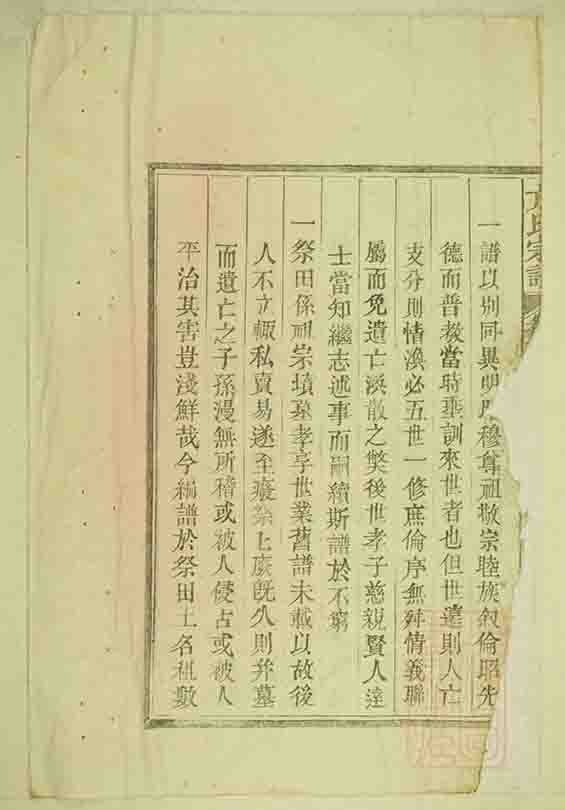 氏宗譜
一譜以別同異明 穆尊祖敬宗睦族叙倫昭先
德而普教當時垂訓來世者也但世遠則人亡
支分則情渙必五世一修庶倫序無舛情義聯
屬而免遺亡渙散之獘後世孝子慈親賢人達
士當知繼志述事而嗣續斯譜於不窮
一祭田係祖宗墳墓孝享世業舊譜未載以故後
人不立輒私賣易遂至廢祭上庻旣久則并墓
而遺亡之子孫漫無所稽或被人侵占或被人
平治其害豈淺鮮哉今緝譜於祭田土名租數